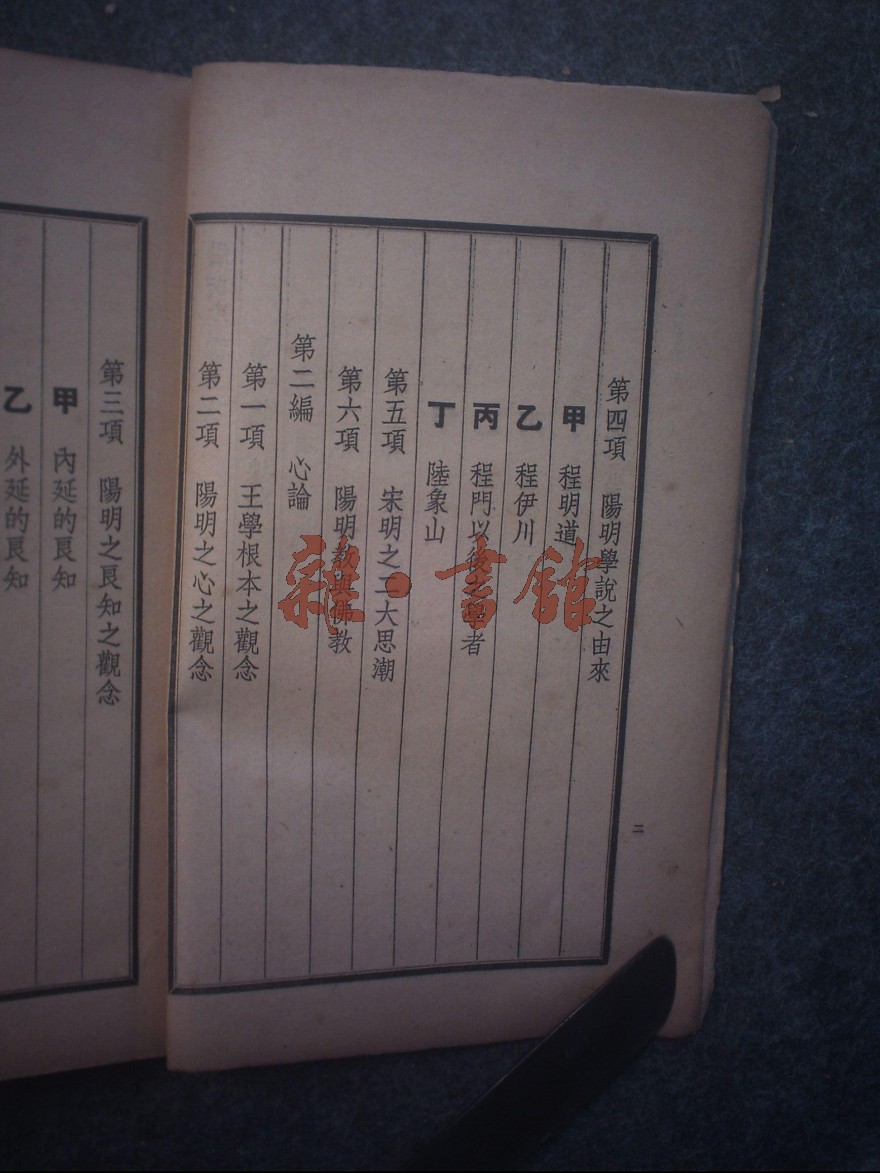 第四項　陽明學說之由來
甲　程明道
乙　程伊川
丙　程門以後之學者
丁　陸象山
第五項　宋明之二大思潮
第六項　陽明教與佛教
第二編　心論
第一項　王學根本之觀念
第二項　陽明之心之觀念
二
第三項　陽明之良知之觀念
甲　內延的良知
乙　外延的良知
雜·書館